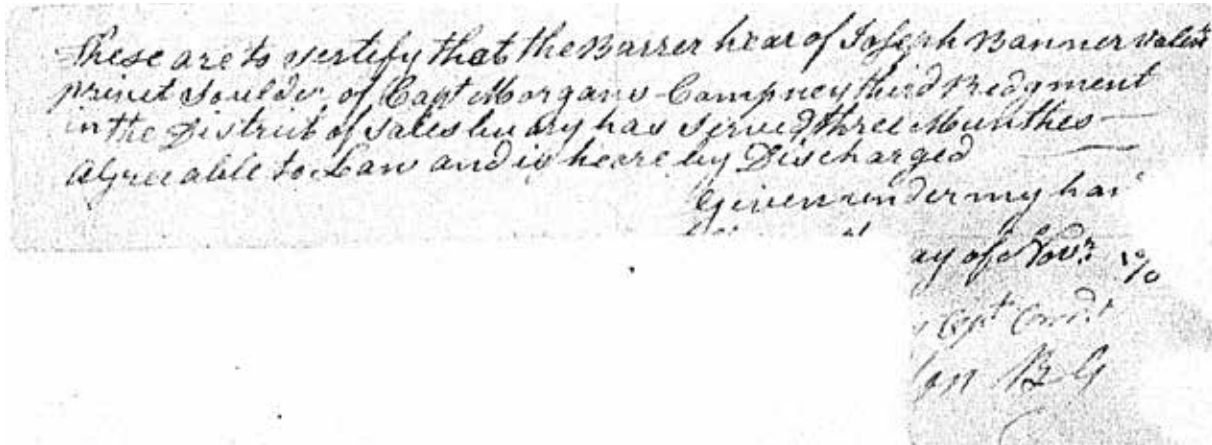 These are to sertify that the Barrer hear of Joseph Banner
privet Soulder of Capt Morgans Campney third Redgment
in the District of Salesbuary has Served three Munthes
agreeable to Law and is heare by Discharged
Given under my han
ay of Novr
Capt Comdt
B G